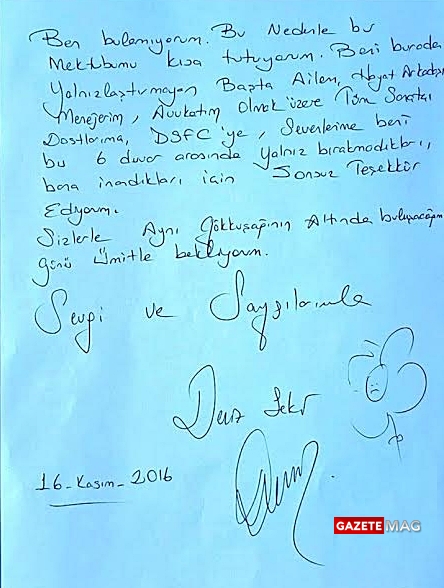 Ben bulamıyorum. Bu Nedenle bu
Mektubumu kısa tutuyorum. Beni burada
Yalnızlaştırmayan Başta Ailem, Hayat Arkadaşı
Menejerim, Avukatım Olmak üzere Tüm Sanatçı
Dostlarıma, DSFC'iye, Sevenlerime beni
bu 6 duvar arasında yalnız bırakmadıkları,
bana inandıkları için Sonsuz Teşekkür
Ediyorum.
Sizlerle Aynı gökkuşağının Altında buluşacağım
günü Ümitle bekliyorum.
Sevgi ve Saygılarımla
Deniz Seki
16-Kasım-2016
GAZETE MAG